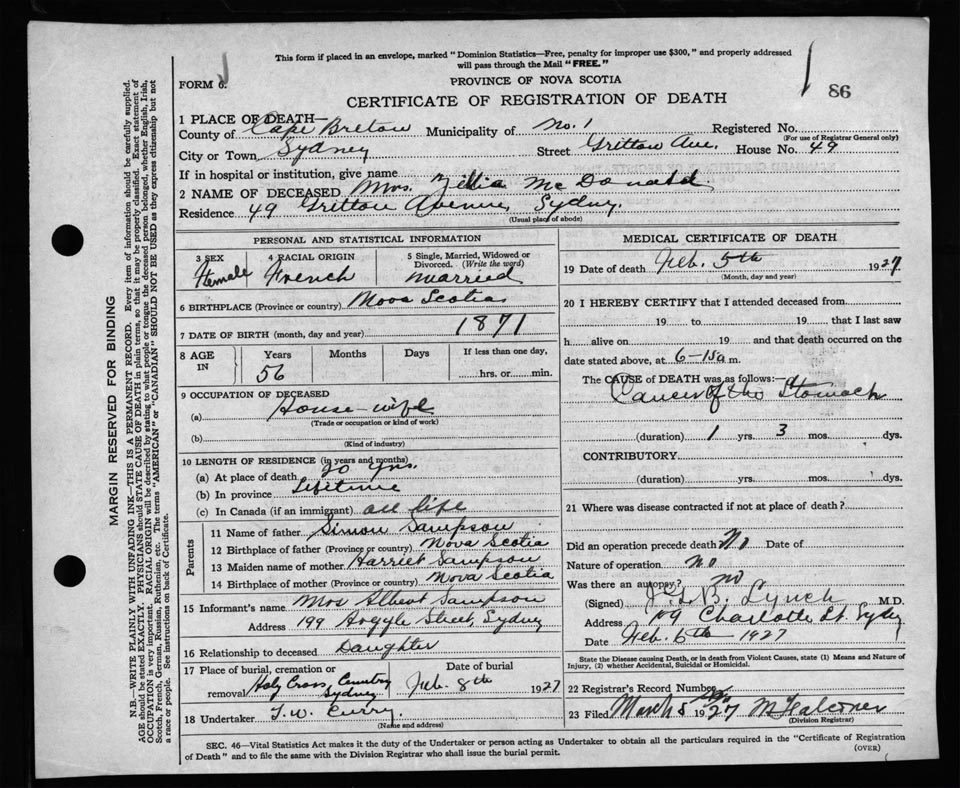 This form if placed in an envelope, marked "Dominion Statistics—Free, penalty for improper use $300," and properly addressed
will pass through the Mail "FREE."
FORM 6.
PROVINCE OF NOVA SCOTIA
86
CERTIFICATE OF REGISTRATION OF DEATH
1 PLACE OF DEATH—
County of Cape Breton Municipality of No. 1 Registered No.
(For use of Registrar General only)
City or Town Sydney Street Gritton Ave. House No. 49
If in hospital or institution, give name
2 NAME OF DECEASED Mrs. McDonald
Residence 49 Gritton Avenue, Sydney.
(Usual place of abode)
PERSONAL AND STATISTICAL INFORMATION
3 SEX Female
4 RACIAL ORIGIN French
5 Single, Married, Widowed or Divorced. (Write the word) married
6 BIRTHPLACE (Province or country) Nova Scotia
7 DATE OF BIRTH (month, day and year) 1871
8 AGE IN Years Months Days If less than one day,
56 hrs. or min.
9 OCCUPATION OF DECEASED
(a) House-wife
(Trade or occupation or kind of work)
(b)
(Kind of industry)
10 LENGTH OF RESIDENCE (in years and months)
(a) At place of death 20 yrs.
(b) In province Lifetime
(c) In Canada (if an immigrant) all life
Parents
11 Name of father Simon Sampson
12 Birthplace of father (Province or country) Nova Scotia
13 Maiden name of mother Harriet Sampson
14 Birthplace of mother (Province or country) Nova Scotia
15 Informant's name Mrs Albert Sampson
Address 199 Argyle Street, Sydney
16 Relationship to deceased Daughter
17 Place of burial, cremation or removal Holy Cross Country Sydney
Date of burial Feb. 8th 1927
18 Undertaker T. W. Curry.
(Name and address)
MEDICAL CERTIFICATE OF DEATH
19 Date of death Feb. 5th 1927
(Month, day and year)
20 I HEREBY CERTIFY that I attended deceased from
19 to 19 , that I last saw
h alive on 19 and that death occurred on the
date stated above, at 6-15a m.
The CAUSE of DEATH was as follows:—
Cancer of the Stomach
(duration) 1 yrs. 3 mos. dys.
CONTRIBUTORY
(duration) yrs. mos. dys.
21 Where was disease contracted if not at place of death?
Did an operation precede death No Date of
Nature of operation no
Was there an autopsy? no
(Signed) J. B. Lynch M.D.
Address 109 Charlotte St. Sydney
Date Feb. 6th 1927
State the Disease causing Death, or in death from Violent Causes, state (1) Means and Nature of
Injury, (2) whether Accidental, Suicidal or Homicidal.
22 Registrar's Record Number
23 Filed March 5 1927
(Division Registrar)
SEC. 46—Vital Statistics Act makes it the duty of the Undertaker or person acting as Undertaker to obtain all the particulars required in the "Certificate of Registration
of Death" and to file the same with the Division Registrar who shall issue the burial permit.
(OVER)
MARGIN RESERVED FOR BINDING
N.B.—WRITE PLAINLY WITH UNFADING INK—THIS IS A PERMANENT RECORD. Every item of information should be carefully supplied.
AGE should be stated EXACTLY. PHYSICIANS should STATE CAUSE OF DEATH in plain terms, so that it may be properly classified. Exact statement of
OCCUPATION is very important. RACIAL ORIGIN will be described by stating to what people or tongue the deceased person belonged, whether English, Irish,
Scotch, French, German, Russian, Ruthenian, etc. The terms "AMERICAN" or "CANADIAN" SHOULD NOT BE USED as they express citizenship but not
a race or people. See instructions on back of Certificate.